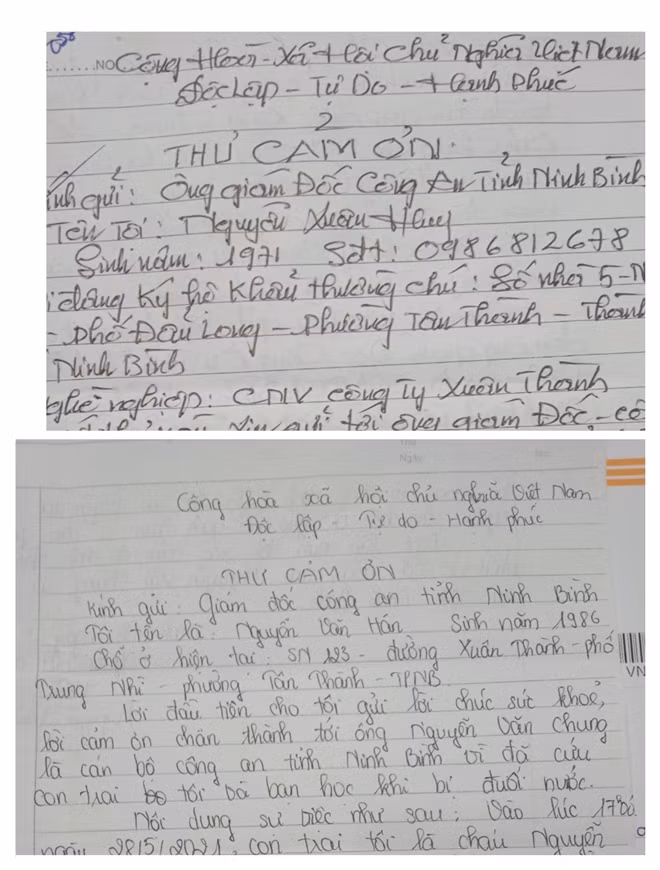 NO Cộng Hoà Xã Hội Chủ Nghĩa Việt Nam
Độc Lập - Tự Do - Hạnh Phúc
THƯ CẢM ƠN
ính gửi: Ông giám Đốc Công An Tỉnh Ninh Bình
Tên Tôi: Nguyễn Xuân Huy
Sinh năm: 1971 Sđt: 0986812678
đăng ký hộ khẩu thường chú: Số nhà 5-N
- phố Đẩu Long - Phường Tân Thành - Thành
Ninh Bình
ghề nghiệp: CNV công Ty Xuân Thành
gửi tới ông giám Đốc - cô
Công hoà xã hội chủ nghĩa Việt Nam
Độc lập - Tự do - Hạnh phúc
THƯ CẢM ƠN
Kính gửi: Giám đốc công an tỉnh Ninh Bình
Tôi tên là: Nguyễn Văn Hán Sinh năm 1986
Chỗ ở hiện tại: SN 193 - đường Xuân Thành - phố
Trung Nhì - phường Tân Thành - TPNB.
Lời đầu tiên cho tôi gửi lời chúc sức khoẻ,
lời cảm ơn chân thành tới ông Nguyễn Văn Chung
là cán bộ công an tỉnh Ninh Bình vì đã cứu
con trai tôi và bạn học khi bị đuối nước.
Nội dung sự việc như sau: Vào lúc
ngày 28/5/2021, con trai tôi là cháu Nguyễn
VN